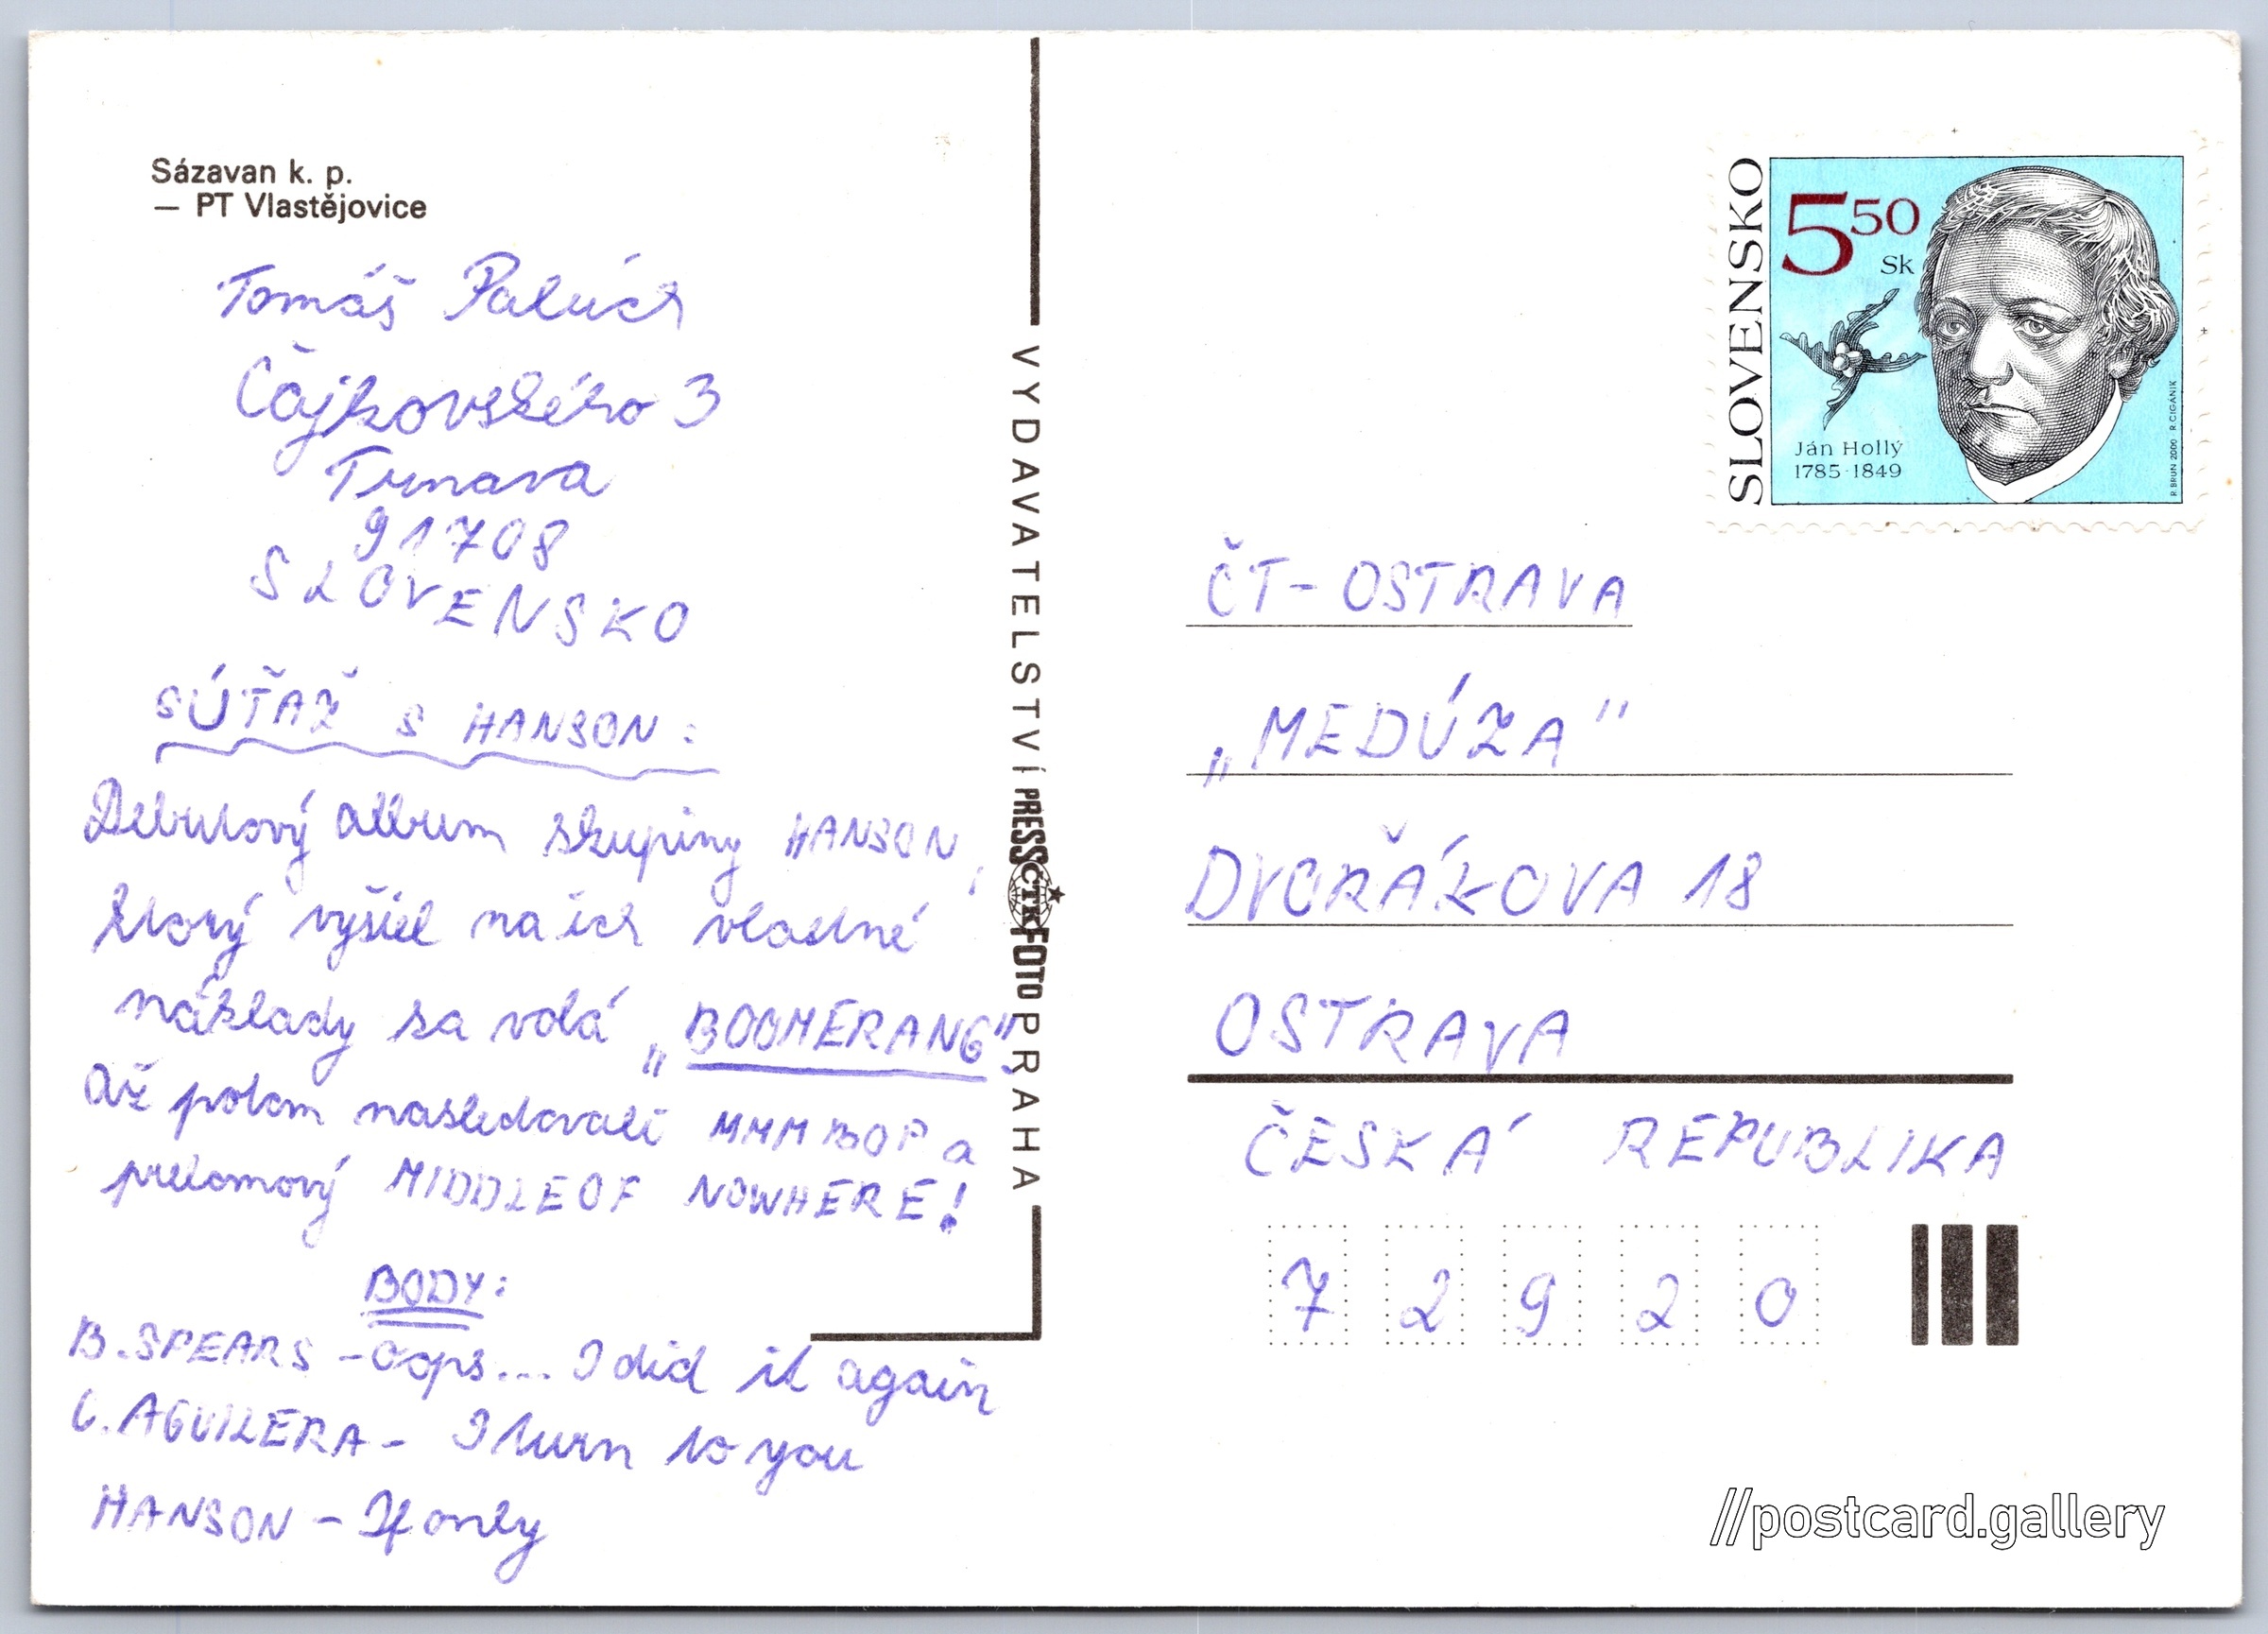 Sázavan k. p.
— PT Vlastějovice
Tomáš Palúch
Čajkovského 3
Trnava
91708
SLOVENSKO
SÚŤAŽ S HANSON:
Debutový album skupiny HANSON,
ktorý vyšiel na ich vlastné
náklady sa volá „BOOMERANG"
Až potom nasledovali MMMBOP a
prelomový MIDDLE OF NOWHERE!
BODY:
B. SPEARS - Oops... I did it again
C. AGUILERA - I turn to you
HANSON - If only
VYDAVATELSTVÍ PRESSFOTO PRAHA
ČTK
SLOVENSKO
5 50
Sk
Ján Hollý
1785 - 1849
R. BRUN 2000 R. CIGÁNIK
ČT - OSTRAVA
„MEDÚZA"
DVOŘÁKOVA 18
OSTRAVA
ČESKÁ REPUBLIKA
7 2 9 2 0
//postcard.gallery